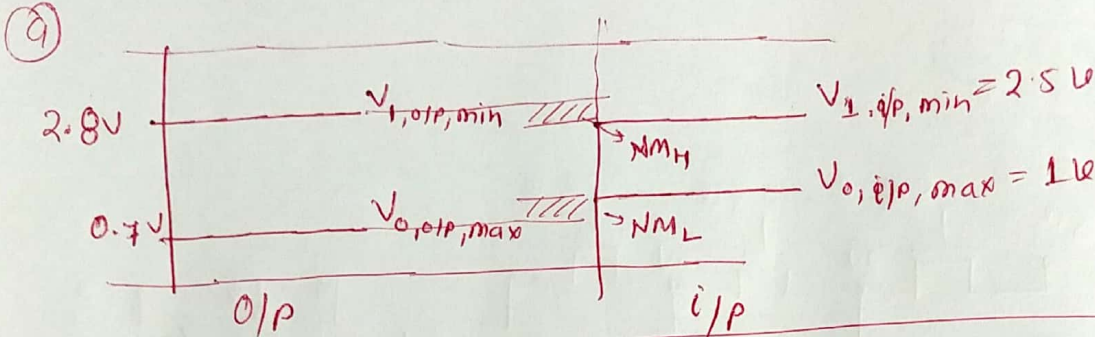 9
2.8V V1,o/p,min V1,i/p,min = 2.5V
NMH
V0,i/p,max = 1V
0.7V V0,o/p,max NML
O/P i/p